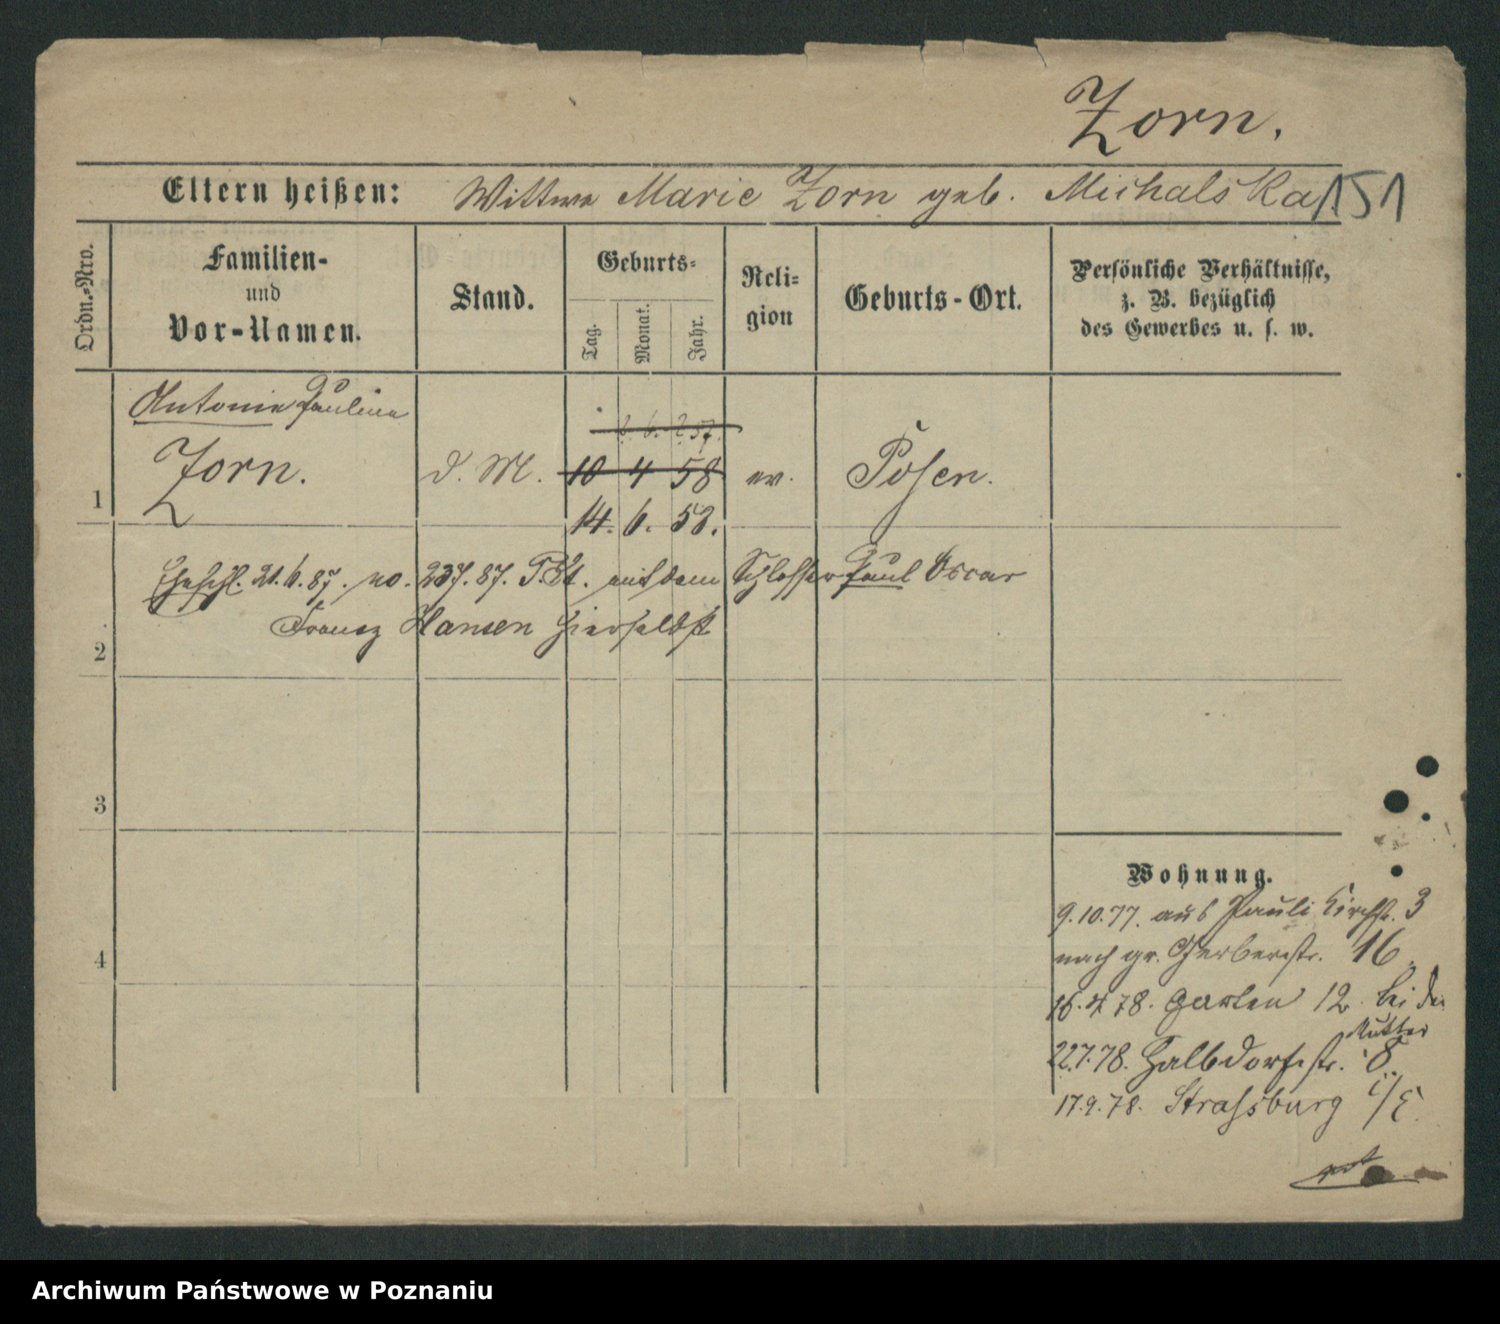 Zorn.
Eltern heißen: Wittwe Marie Zorn geb. Michalska 151
Ordn.-Nro.
Familien-
und
Vor-Namen.
Stand.
Geburts-
Tag.
Monat.
Jahr.
Reli-
gion
Geburts-Ort.
Persönliche Verhältnisse,
z. B. bezüglich
des Gewerbes u. s. w.
Antonie Pauline
Zorn. d. M. 10 4 58 ev. Posen.
1
14. 6. 58.
Eheschl. 21.6.87. no. 237.87. P.St. mit dem Schlosser Paul Oscar
Franz Hansen hierselbst
2
3
4
Wohnung.
9.10.77. aus Pauli Kirchstr. 3
nach gr. Gerberstr. 16
16.4.78. Garten 12. bei der
Mutter
22.7.78. Halbdorfstr. 8.
17.9.78. Strassburg i/E
Archiwum Państwowe w Poznaniu